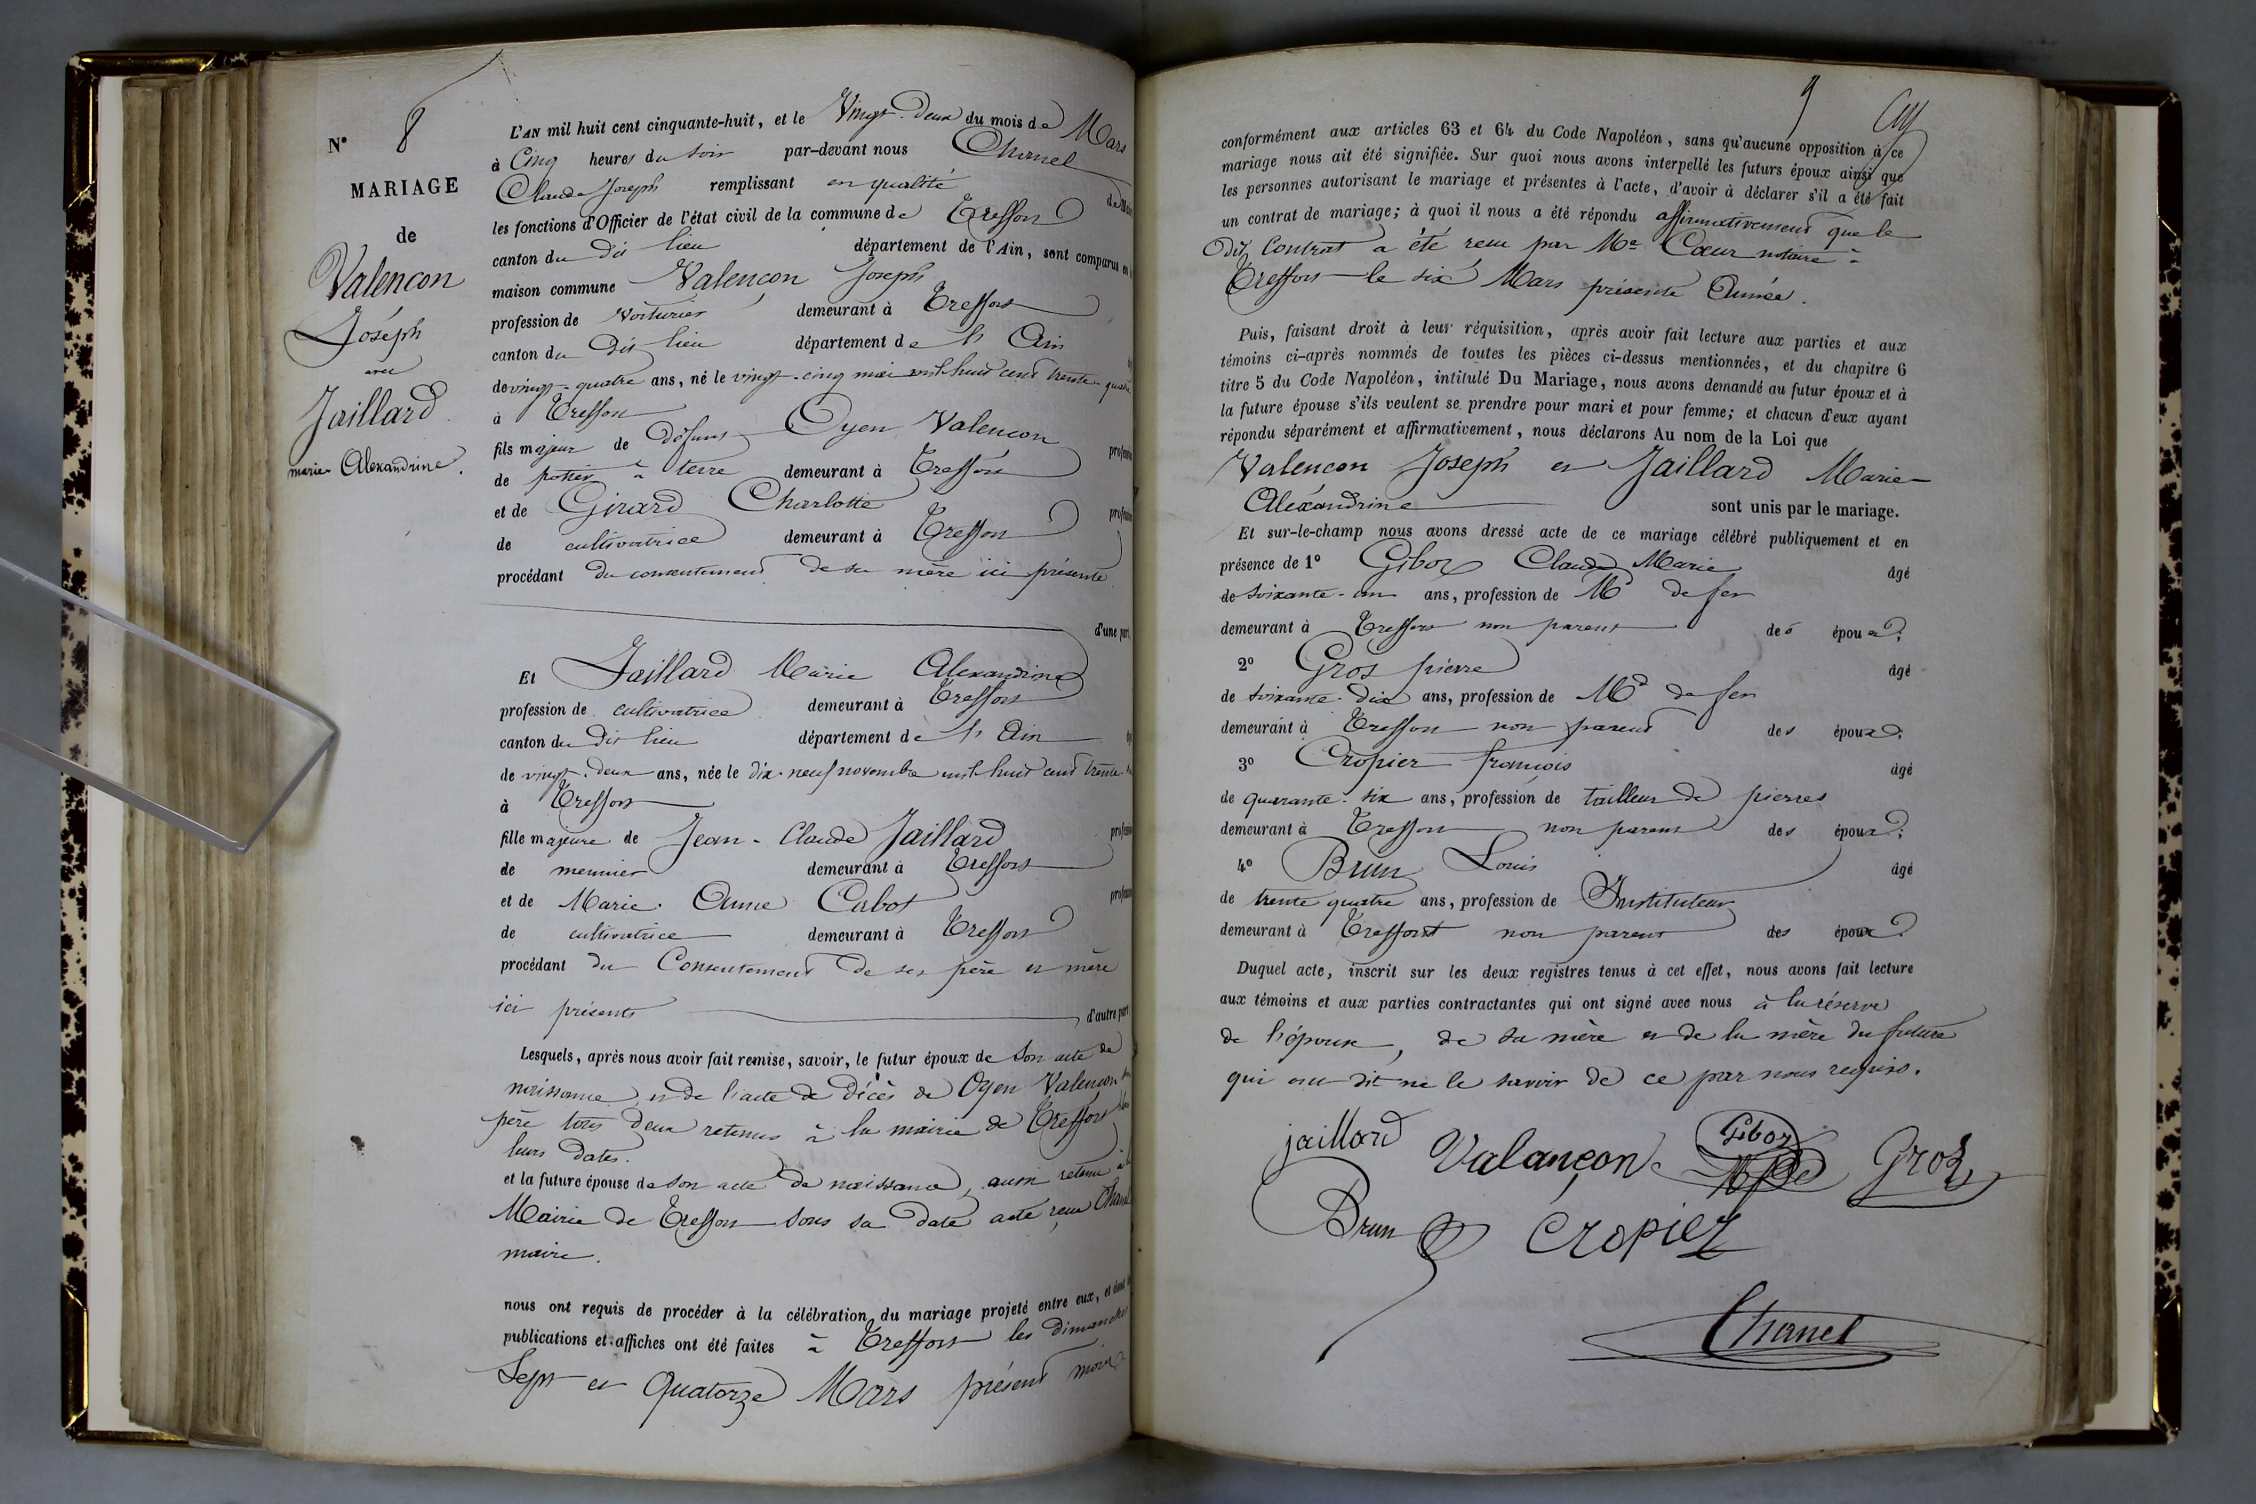 N° 8
MARIAGE
de
Valencon
Joséph
avec
Jaillard
marie Alexandrine.
L'AN mil huit cent cinquante-huit, et le Vingt-deux du mois de Mars
à Cinq heures du soir par-devant nous Chanel
Claude Joseph remplissant en qualité de
les fonctions d'Officier de l'état civil de la commune de Treffort
canton du dit lieu département de l'Ain, sont comparus en
maison commune Valençon Joseph
profession de Voiturier demeurant à Treffort
canton du Dit lieu département de l'Ain
de vingt-quatre ans, né le vingt-cinq mai mil huit cent trente-quatre
à Treffort
fils majeur de défunt Oyen Valencon
de potier à terre demeurant à Treffort
et de Girard Charlotte
de cultivatrice demeurant à Treffort
procédant du consentement de sa mère ici présente
d'une part,
Et Jaillard Marie Alexandrine
profession de cultivatrice demeurant à Treffort
canton du Dit lieu département de l'Ain
de vingt-deux ans, née le dix-neuf novembre mil huit cent trente
à Treffort
fille majeure de Jean-Claude Jaillard
de meunier demeurant à Treffort
et de Marie-Anne Cabot
de cultivatrice demeurant à Treffort
procédant du Consentement de ses père et mère
ici présents d'autre part
Lesquels, après nous avoir fait remise, savoir, le futur époux de son acte de
naissance, et de l'acte de décès de Oyen Valençon son
père tous deux retenus à la mairie de Treffort
leurs dates.
et la future épouse de son acte de naissance, aussi retenu à la
Mairie de Treffort sous sa date acte reçu Chanel
maire.
nous ont requis de procéder à la célébration du mariage projeté entre eux, et dont
publications et affiches ont été faites à Treffort les dimanches
Sept et Quatorze Mars présent mois
9
conformément aux articles 63 et 64 du Code Napoléon, sans qu'aucune opposition à ce
mariage nous ait été signifiée. Sur quoi nous avons interpellé les futurs époux ainsi que
les personnes autorisant le mariage et présentes à l'acte, d'avoir à déclarer s'il a été fait
un contrat de mariage; à quoi il nous a été répondu affirmativement que le
dit Contrat a été reçu par Me Cœur notaire à
Treffort le six Mars présente Année.
Puis, faisant droit à leur réquisition, après avoir fait lecture aux parties et aux
témoins ci-après nommés de toutes les pièces ci-dessus mentionnées, et du chapitre 6
titre 5 du Code Napoléon, intitulé Du Mariage, nous avons demandé au futur époux et à
la future épouse s'ils veulent se prendre pour mari et pour femme; et chacun d'eux ayant
répondu séparément et affirmativement, nous déclarons Au nom de la Loi que
Valencon Joseph et Jaillard Marie
Aléxandrine sont unis par le mariage.
Et sur-le-champ nous avons dressé acte de ce mariage célébré publiquement et en
présence de 1° Giboz Claude Marie âgé
de soixante-un ans, profession de Md de fer
demeurant à Treffort non parent des époux;
2° Gros pierre âgé
de soixante-dix ans, profession de Md de fer
demeurant à Treffort non parent des époux;
3° Cropier françois âgé
de quarante-six ans, profession de tailleur de pierres
demeurant à Treffort non parent des époux;
4° Brun Louis âgé
de trente quatre ans, profession de Instituteur
demeurant à Treffort non parent des époux
Duquel acte, inscrit sur les deux registres tenus à cet effet, nous avons fait lecture
aux témoins et aux parties contractantes qui ont signé avec nous à la réserve
de l'épouse, de sa mère et de la mère du future
qui ont dit ne le savoir de ce par nous requis.
jaillard Valançon Giboz Groz
Brun Cropier
Chanel